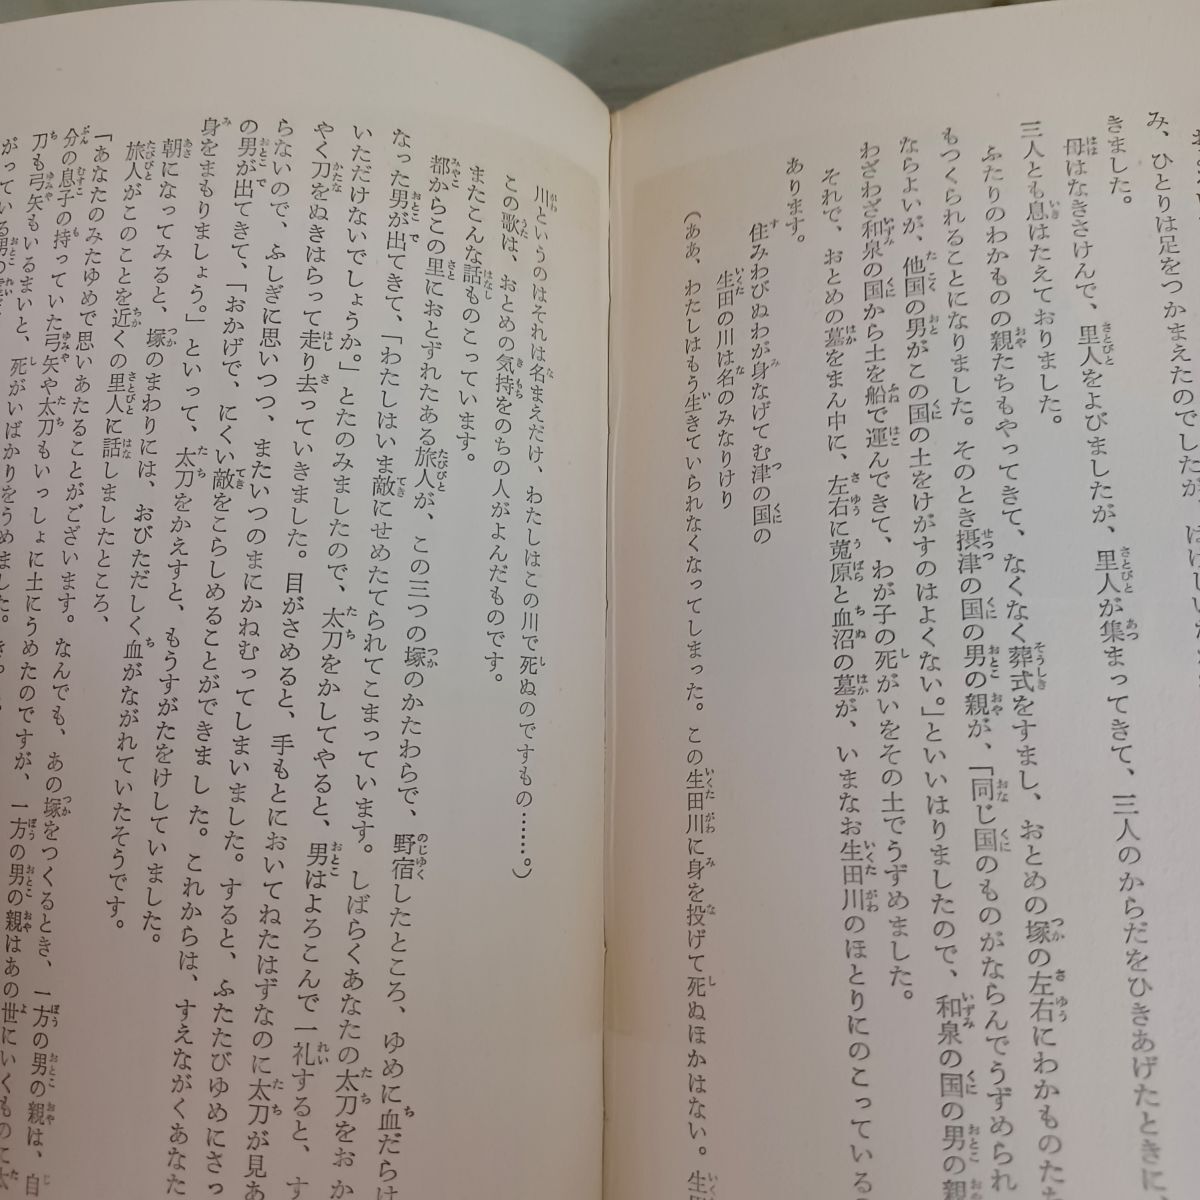 み、ひとりは足をつかまえたのでしたが、はげしい
きました。
母はなきさけんで、里人をよびましたが、里人が集まってきて、三人のからだをひきあげたときに、
三人とも息はたえておりました。
ふたりのわかものの親たちもやってきて、なくなく葬式をすまし、おとめの塚の左右にわかものたち
もつくられることになりました。そのとき摂津の国の男の親が、「同じ国のものがならんでうずめられ
ならよいが、他国の男がこの国の土をけがすのはよくない。」といいはりましたので、和泉の国の男の親
わざわざ和泉の国から土を船で運んできて、わが子の死がいをその土でうずめました。
それで、おとめの墓をまん中に、左右に菟原と血沼の墓が、いまなお生田川のほとりにのこっている
あります。
住みわびぬわが身なげてむ津の国の
生田の川は名のみなりけり
(ああ、わたしはもう生きていられなくなってしまった。この生田川に身を投げて死ぬほかはない。生
川というのはそれは名まえだけ、わたしはこの川で死ぬのですもの……。)
この歌は、おとめの気持をのちの人がよんだものです。
またこんな話ものこっています。
都からこの里におとずれたある旅人が、この三つの塚のかたわらで、野宿したところ、ゆめに血だらけ
なった男が出てきて、「わたしはいま敵にせめたてられてこまっています。しばらくあなたの太刀をおか
いただけないでしょうか。」とたのみましたので、太刀をかしてやると、男はよろこんで一礼すると、す
やく刀をぬきはらって走り去っていきました。目がさめると、手もとにおいてねたはずなのに太刀が見あ
らないので、ふしぎに思いつつ、またいつのまにかねむってしまいました。すると、ふたたびゆめにさっ
の男が出てきて、「おかげで、にくい敵をこらしめることができました。これからは、すえながくあなた
身をまもりましょう。」といって、太刀をかえすと、もうすがたをけしていました。
朝になってみると、塚のまわりには、おびただしく血がながれていたそうです。
旅人がこのことを近くの里人に話しましたところ、
「あなたのみたゆめで思いあたることがございます。なんでも、あの塚をつくるとき、一方の男の親は、自
分の息子の持っていた弓矢や太刀もいっしょに土にうめたのですが、一方の男の親はあの世にいくものに太
刀も弓矢もいるまいと、死がいばかりをうめました。
がっている男の